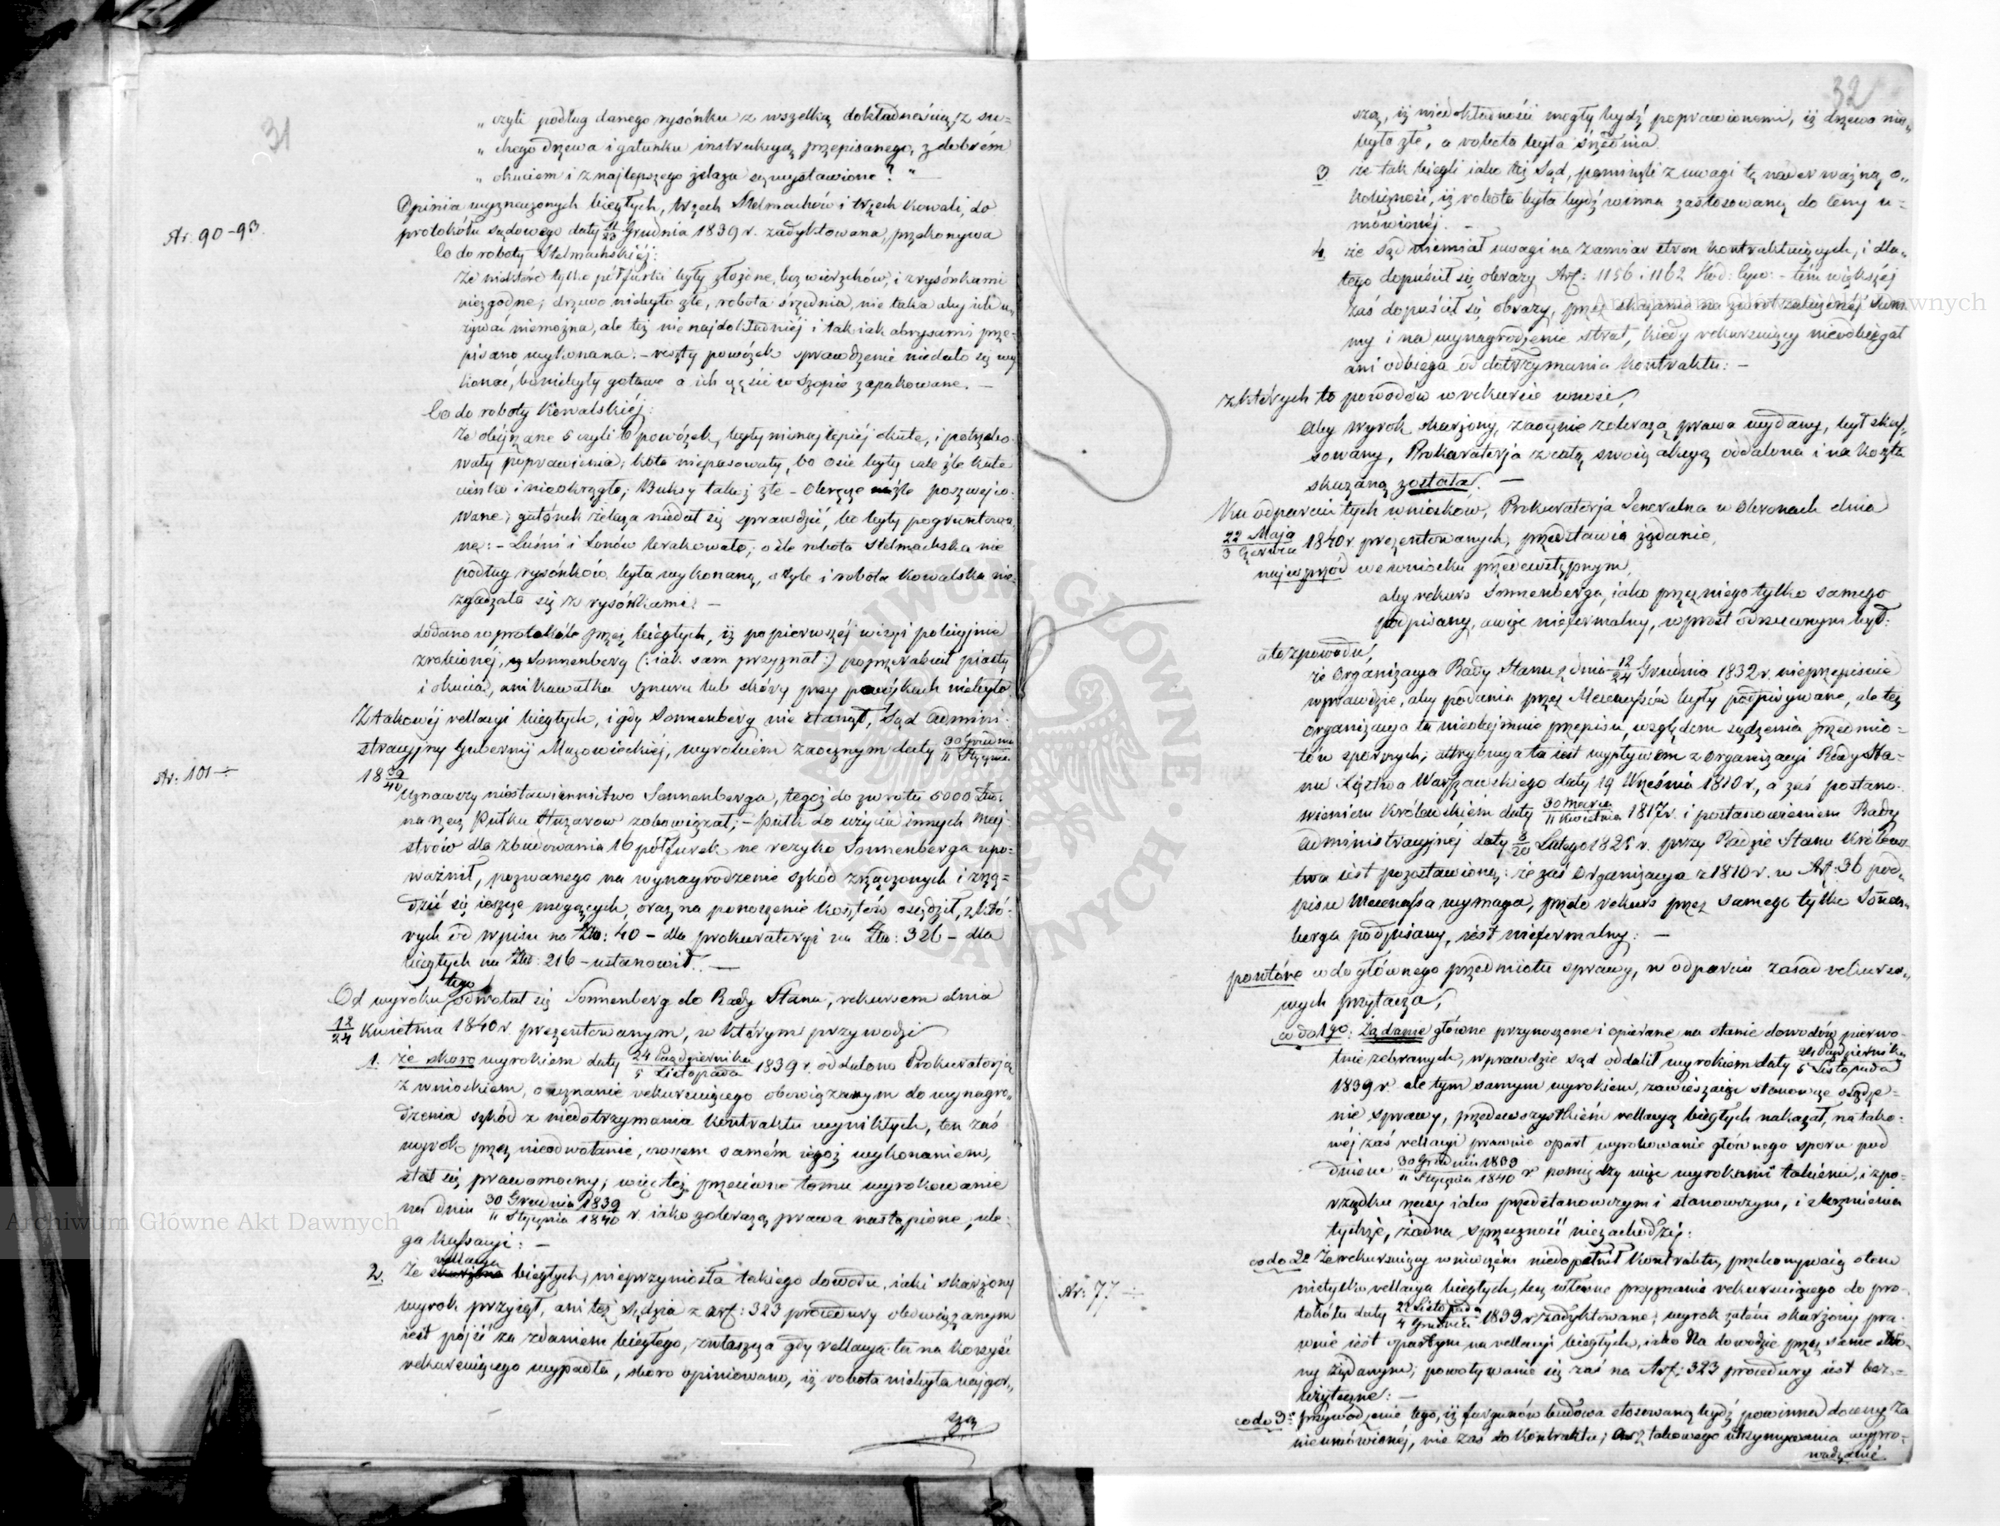 31
„ czyli podług danego rysónku z wszelką dokładnością, z su-
„ chego drzewa i gatunku instrukcyą przepisanego, z dobrém
„ okuciem i z najlepszego żelaza są wystawione? "
Opinia wyznaczonych biegłych, trzech Stelmachów i trzech Kowali, do
Ar. 90-93.
protokółu sądowego daty 11/23 Grudnia 1839 r. zadyktowana, przekonywa
Co do roboty Stelmachskiéj:
że niektóre tylko półfurki były złożone, bez wierzchów, i z rysónkami
niezgodne; drzewo niebyło złe, robota średnia, nie taka aby ich u-
żywać niemożna, ale też nie najdokładniéj i tak jak abrysami prze-
pisano wykonana. - reszty powózek sprawdzenie niedało się wy
konać, bo niebyły gotowe a ich części w Szopie zapakowane. —
Co do roboty Kowalskiéj:
że obejrzane 5 czyli 6 powózek, były nienajlepiéj okute, i potrzebo-
wały poprawienia; koła niepasowały, bo osie były całe źle kute
cienko i nieokrągło; Buksy takoż złe - Obręcze źle poszwejso-
wane; gatónek żelaza niedał się sprawdzić, bo były pogruntowa-
ne: - Luśni i Lonów brakowało; o ile robota Stelmachska nie
podług rysónków była wykonaną, o tyle i robota Kowalska nie-
zgadzała się z rysónkami. —
dodano w protokóle przez biegłych, iż po pierwszéj wizyi policyjnie
zrobionéj, Sonnenberg (: jak sam przyznał :) poprzerabiał piasty
i okucia, ani kawałka sznuru lub skóry przy powózkach niebyło
Z takowéj rellacyi biegłych, i gdy Sonnenberg nie stanął, Sąd Admini-
stracyjny Gubernij Mazowieckiéj, wyrokiem zaocznym daty 30 Grudnia/11 Stycznia
Ar. 101 ÷
18 39/40
Uznawszy niestawiennictwo Sonnenberga, tegoż do zwrotu 5000 Złp.
na rzecz Pułku Huzarów zobowiązał; - pułk do użycia innych maj-
strów dla zbudowania 16 półfurek na ryzyko Sonnenberga upo-
ważnił, pozwanego na wynagrodzenie szkód zrządzonych i zrzą-
dzić się jeszcze mogących, oraz na ponoszenie kosztów osądził, z któ-
rych od wpisu na Złp: 40 - dla prokuratoryi na Złp: 326 - dla
biegłych na Złp: 216 - ustanowił. —
Od wyroku tego odwołał się Sonnenberg do Rady Stanu, rekursem dnia
12/24 Kwietnia 1840 r. prezentowanym, w którym przywodzi
1. że skoro wyrokiem daty 24 Października/5 Listopada 1839 r. oddalono Prokuratorją
z wnioskiem, o uznanie rekurującego obowiązanym do wynagro-
dzenia szkód z niedotrzymania kontraktu wynikłych, ten zaś
wyrok przez nieodwołanie, owszem samém jegoż wykonaniem,
stał się prawomocny, więc też przeciwne temu wyrokowanie
na dniu 30 Grudnia 1839/11 Stycznia 1840 r. jako z obrazą prawa nastąpione, ule-
ga Kassacyi: —
2. że rellacya biegłych, nieprzyniosła takiego dowodu, jaki skarżony
wyrok przyjął, ani też sędzia z art: 323 procedury obowiązanym
jest pójść za zdaniem biegłego, zwłaszcza gdy rellacya ta na korzyść
rekurującego wypadła, skoro opiniowano, iż robota niebyła najgor-
32
szą, iż niedokładności mogły bydź poprawionemi, iż drzewo nie-
było złe, a robota była średnia.
3 że tak biegli jako też Sąd, pominęli z uwagi tę nader ważną o-
koliczność, iż robota była bydź winna zastosowaną do ceny u-
mówionéj. -
4 że sąd niemiał uwagi na zamiar stron kontraktujących, i dla-
tego dopuścił się obrazy Art: 1156 i 1162 Kod: Cyw: - tém większéj
zaś dopuścił się obrazy, przez skazanie na zwrot zaliczonéj Sum
my i na wynagrodzenie strat, kiedy rekurujący nieodbiegał
ani odbiega od dotrzymania kontraktu: -
z których to powodów w rekursie wnosi,
Aby wyrok skarżony, zaocznie z obrazą prawa wydany, był skas-
sowany, Prokuratorja z całą swoją akcyą oddaloną i na koszta
skazaną została. —
Ku odparciu tych wniosków, Prokuratorja Generalna w obronach dnia
22 Maja/3 Czerwca 1840 r. prezentowanych, przedstawia żądanie,
najwprzód we wniosku przedwstępnym,
aby rekurs Sonnenberga, jako przez niego tylko samego
podpisany, a więc nieformalny, wprost odrzuconym był:
a to z powodu,
że Organizacya Rady Stanu z dnia 12/24 Grudnia 1832 r. nieprzepisuje
wprawdzie, aby podania przez Mecenasów były podpisywane, ale też
organizacya ta nieobejmuje przepisu względem sądzenia przedmio-
tów spornych; attrybucya ta jest wypływem z Organizacyi Rady Sta-
nu Xięstwa Warszawskiego daty 19 Września 1810 r., a zaś postano-
wieniem Królewskiem daty 30 Marca/11 Kwietnia 1817 r. i postanowieniem Rady
Administracyjnéj daty 8/20 Lutego 1825 r. przy Radzie Stanu Królest-
twa jest pozostawioną: że zaś Organizacya z 1810 r. w Art: 36 pod-
pisu Mecenasa wymaga, przeto rekurs przez samego tylko Sonen-
berga podpisany, jest nieformalny: —
powtóre co do głównego przedmiotu sprawy, w odparciu zasad rekurso-
wych przytacza,
co do 1go: Żądanie główne przynoszone i opierane na stanie dowodów pierwo-
tnie zebranych, wprawdzie sąd oddalił wyrokiem daty 24 Października/5 Listopada
1839 r. ale tym samym wyrokiem, zawieszając stanowcze osądze-
nie sprawy, przedewszystkiém rellacyą biegłych nakazał, na tako-
wéj zaś rellacyi prawnie oparł wyrokowanie głównego sporu pod
dniem 30 Grudnia 1839/11 Stycznia 1840 r. pomiędzy więc wyrokami takiemi, i zpo-
rządku rzeczy jako przedstanowczym i stanowczym, i z brzmienia
tychże, żadna sprzeczność niezachodzi:
co do 2e Że rekurujący w niczém niedopełnił Kontraktu, przekonywają o tem
nietylko rellacya biegłych, lecz własne przyznanie rekurującego do pro-
Ar. 77 ÷
tokółu daty 22 Listopada/4 Grudnia 1839 r. zadyktowane; wyrok zatém skarżony pra-
wnie jest opartym na rellacyi biegłych, jako na dowodzie przez same stro-
ny żądanym; powoływanie się zaś na Art: 323 procedury jest bez-
użyteczne: —
co do 3e przywodzenie tego, iż furgonów budowa stosowaną bydź powinna do ceny za
nie umówionéj, nie zaś do Kontraktu; Oraz takowego utrzymywania wypro-
wadzenie
Archiwum Główne Akt Dawnych
Archiwum Główne Akt Dawnych
ARCHIWUM GŁÓWNE AKT DAWNYCH